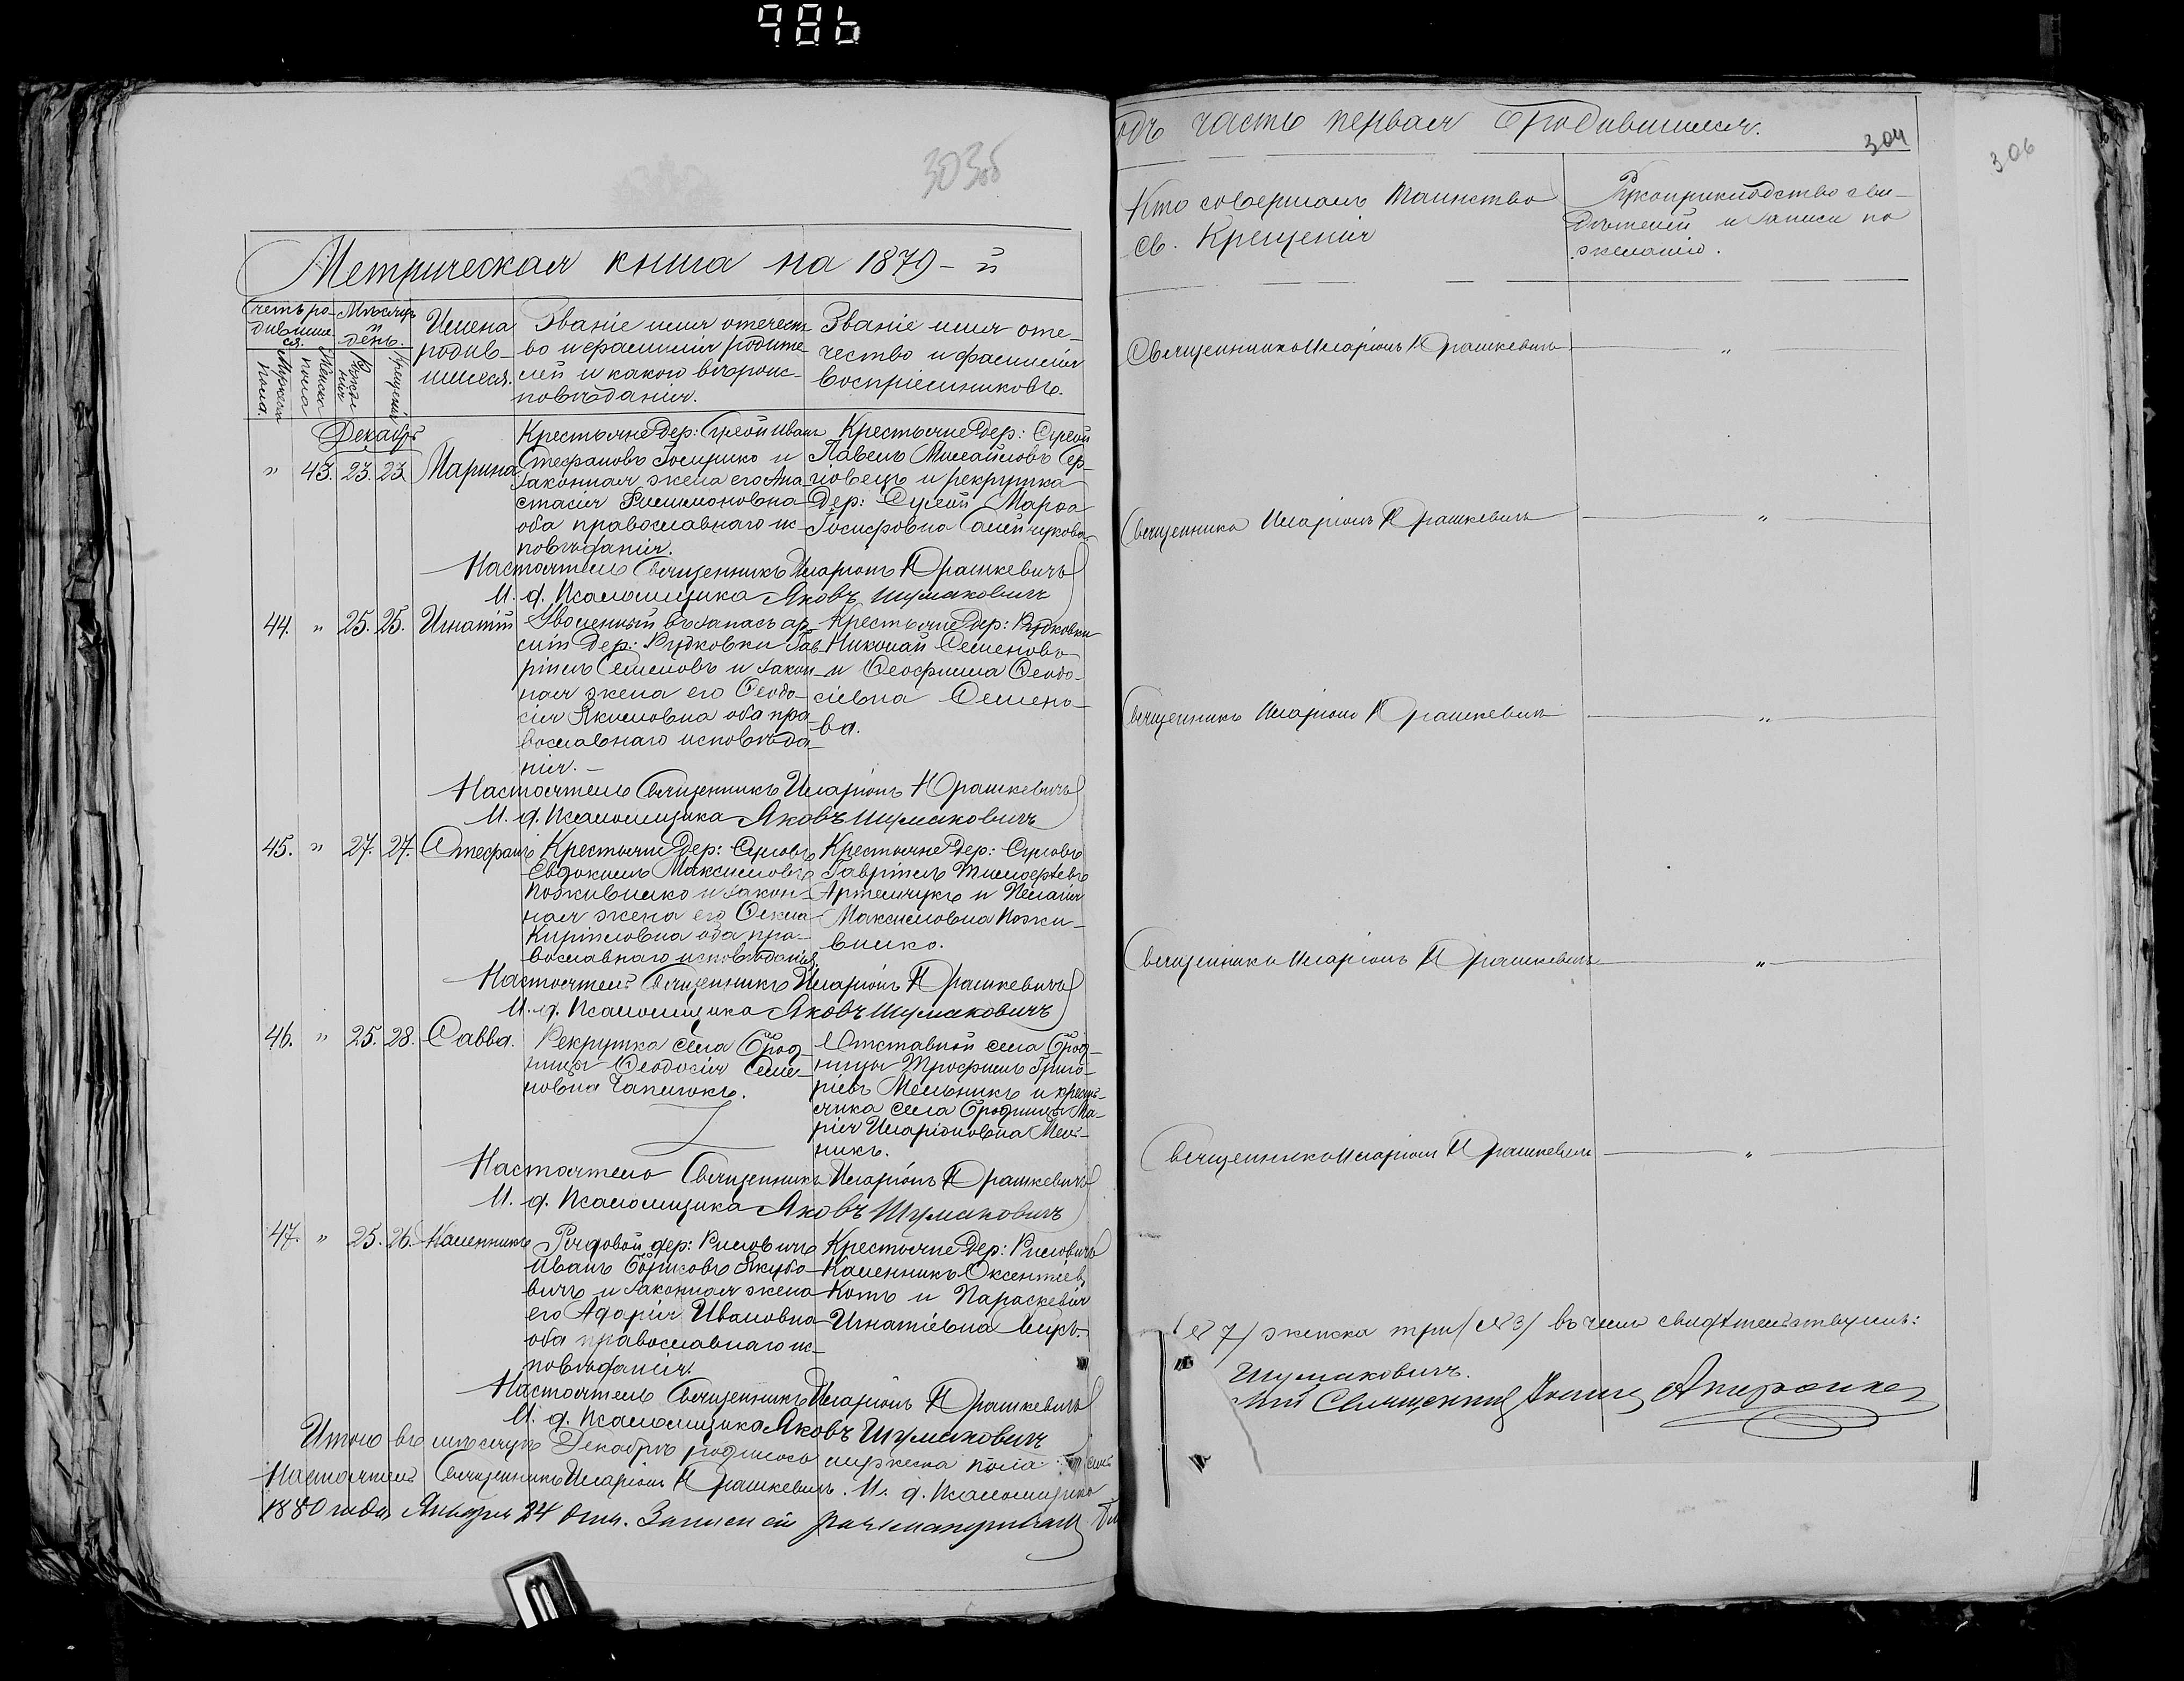 986
303об
Метрическая книга на 1879-й
Счетъ ро-
дивших-
ся.
Мужеска
пола.
Женска
пола
Мѣсяцъ
и
день.
Рожде
нія
Крещенія
Имена
родив-
шихся.
Званіе имя отечест-
во и фамилія родите-
лей и какого вѣроис-
повѣданія.
Званіе имя оте-
чество и фамилія
воспріемниковъ.
Декабрь
" 43. 23. 23. Марина
Крестьяне дер: Иванъ
Стефановъ и
законная жена его Ана-
стасія Филимоновна
оба православнаго ис-
повѣданія.
Крестьяне дер:
Павелъ Михайловъ
и рекрутка
дер: Марѳа
Іосифовна
Настоятель Священникъ Иларіонъ Юрашкевичъ
И. д. Псаломщика Яковъ Шумаковичъ
44. " 25. 25. Игнатій
Уволенный въ запасъ ар-
міи дер: Рудковки Гав-
ріилъ Семеновъ и закон-
ная жена его Ѳеодо-
сія Якимовна оба пра-
вославнаго исповѣда-
нія.-
Крестьяне дер: Рудковки
Николай Семеновъ
и Ѳеофила Ѳеодо-
сіевна Семено-
ва.
Настоятель Священникъ Иларіонъ Юрашкевичъ
И. д. Псаломщика Яковъ Шумаковичъ
45. " 27. 27. Стефанъ
Крестьяне дер:
Евдокимъ Максимовъ
Поживилко и закон-
ная жена его Ѳекла
Кириловна оба пра-
вославнаго исповѣданія.
Крестьяне дер:
Гавріилъ Тимоѳеевъ
Артемчукъ и Пелагія
Максимовна Пожи-
вилко.
Настоятель Священникъ Иларіонъ Юрашкевичъ
И. д. Псаломщика Яковъ Шумаковичъ
46. " 25. 28. Савва.
Рекрутка села Брод-
ницы Ѳеодосія Семе-
новна
Отставной села Брод-
ницы Трофимъ Григо-
ріевъ Мельникъ и крестья-
нка села Бродницы Ма-
рія Иларіоновна Мель-
никъ.
Настоятель Священникъ Иларіонъ Юрашкевичъ
И. д. Псаломщика Яковъ Шумаковичъ
47. " 25. 26. Каленникъ
Рядовой дер: Риловичъ
Иванъ Борисовъ Якубо-
вичъ и законная жена
его Адарія Ивановна
оба православнаго ис-
повѣданія.
Крестьяне дер: Риловичъ
Каленникъ Оксентіевъ
Котъ и Параскевія
Игнатіевна
Настоятель Священникъ Иларіонъ Юрашкевичъ
И. д. Псаломщика Яковъ Шумаковичъ
Итого въ мѣсяцѣ Декабрѣ родилось мужеска пола семь
Настоятель Священникъ Иларіонъ Юрашкевичъ. И. д. Псаломщика
1880 года Января 24 дня. Записи сіи разсматривалъ
одъ часть первая О родившихся.
304
306
Кто совершалъ таинство
св. Крещенія
Рукоприкладство сви-
дѣтелей и записи по
желанію.
Священникъ Иларіонъ Юрашкевичъ "
Священникъ Иларіонъ Юрашкевичъ "
Священникъ Иларіонъ Юрашкевичъ "
Священникъ Иларіонъ Юрашкевичъ "
Священникъ Иларіонъ Юрашкевичъ "
(№ 7) женска три (№ 3) въ чемъ свидѣтельствуемъ:
Шумаковичъ.
Священникъ